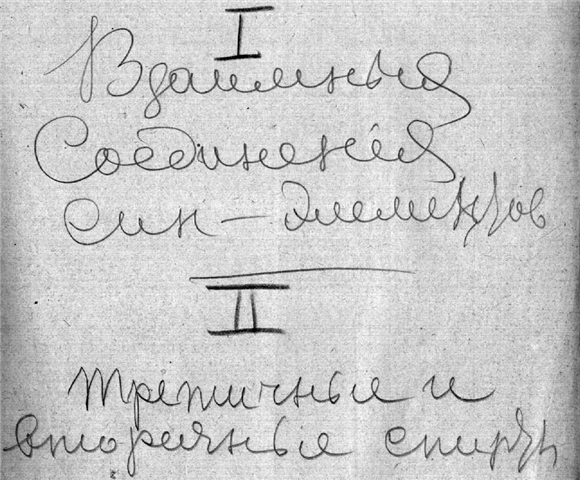 I
Взаимныя
Соединения
син-элементов
II
третичные и
вторичные спирты